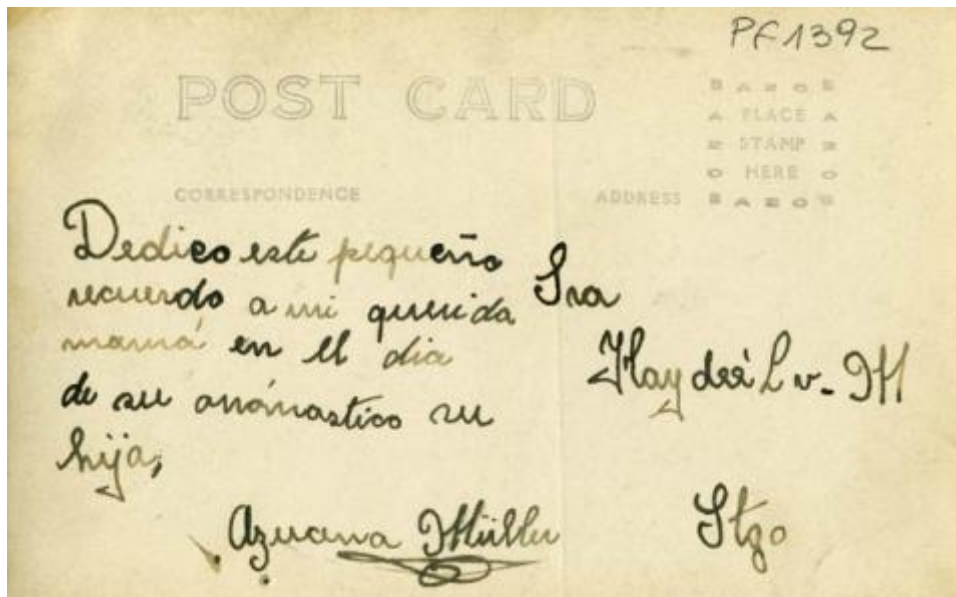 PF1392
POST CARD
AZOE
A PLACE A
Z STAMP Z
O HERE O
AZOE
CORRESPONDENCE
ADDRESS
Dedico este pequeño
recuerdo a mi querida
mamá en el dia
de su onónastico su
hija,
Azucena Müller
Sra
Haydeé L v. M
Stgo